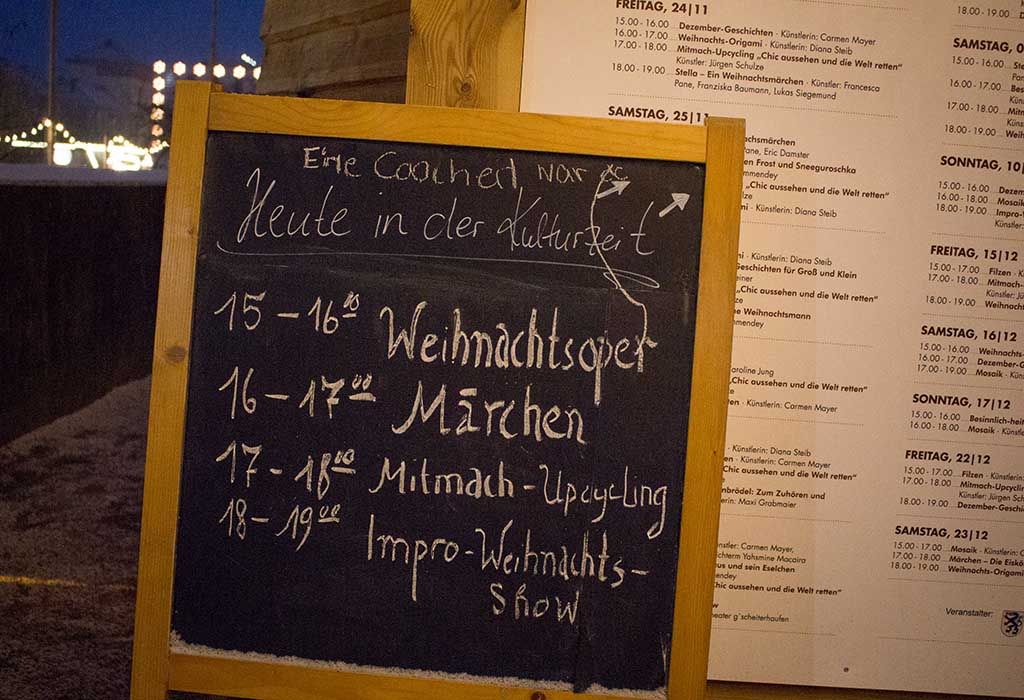 Heute in der Kulturzeit
15 – 16 00 Weihnachtsoper
16 – 17 00 Märchen
17 – 18 00 Mitmach - Upcycling
18 – 19 00 Impro - Weihnachts -
Show
FREITAG, 24|11
15.00 - 16.00 Dezember-Geschichten · Künstlerin: Carmen Mayer
16.00 - 17.00 Weihnachts-Origami · Künstlerin: Diana Steib
17.00 - 18.00 Mitmach-Upcycling „Chic aussehen und die Welt retten“
Künstler: Jürgen Schulze
18.00 - 19.00 Stella – Ein Weihnachtsmärchen · Künstler: Francesca
Pane, Franziska Baumann, Lukas Siegemund
SAMSTAG, 25|11
Eric Damster
Frost und Sneeguroschka
„Chic aussehen und die Welt retten“
Künstlerin: Diana Steib
Künstlerin: Diana Steib
Geschichten für Groß und Klein
„Chic aussehen und die Welt retten“
Weihnachtsmann
Caroline Jung
„Chic aussehen und die Welt retten“
Künstlerin: Carmen Mayer
Künstlerin: Diana Steib
Künstlerin: Carmen Mayer
Chic aussehen und die Welt retten“
Zum Zuhören und
Maxi Grabmaier
Carmen Mayer,
Yahsmine Macaira
und sein Eselchen
Chic aussehen und die Welt retten“
g´scheiterhaufen
18.00 - 19.00
SAMSTAG,
15.00 - 16.00
16.00 - 17.00
17.00 - 18.00
18.00 - 19.00
SONNTAG,
15.00 - 16.00
16.00 - 18.00
18.00 - 19.00
FREITAG, 15|12
15.00 - 17.00 Filzen · Künstlerin:
17.00 - 18.00
18.00 - 19.00
SAMSTAG, 16|12
15.00 - 16.00
16.00 - 17.00
17.00 - 19.00 Mosaik · Künstlerin:
SONNTAG, 17|12
15.00 - 16.00
16.00 - 18.00 Mosaik · Künstlerin:
FREITAG, 22|12
15.00 - 17.00 Filzen · Künstlerin:
17.00 - 18.00
18.00 - 19.00
SAMSTAG, 23|12
15.00 - 16.00 Mosaik · Künstlerin:
16.00 - 18.00 Märchen – Die
18.00 - 19.00 Weihnachts-Origami
Veranstalter: